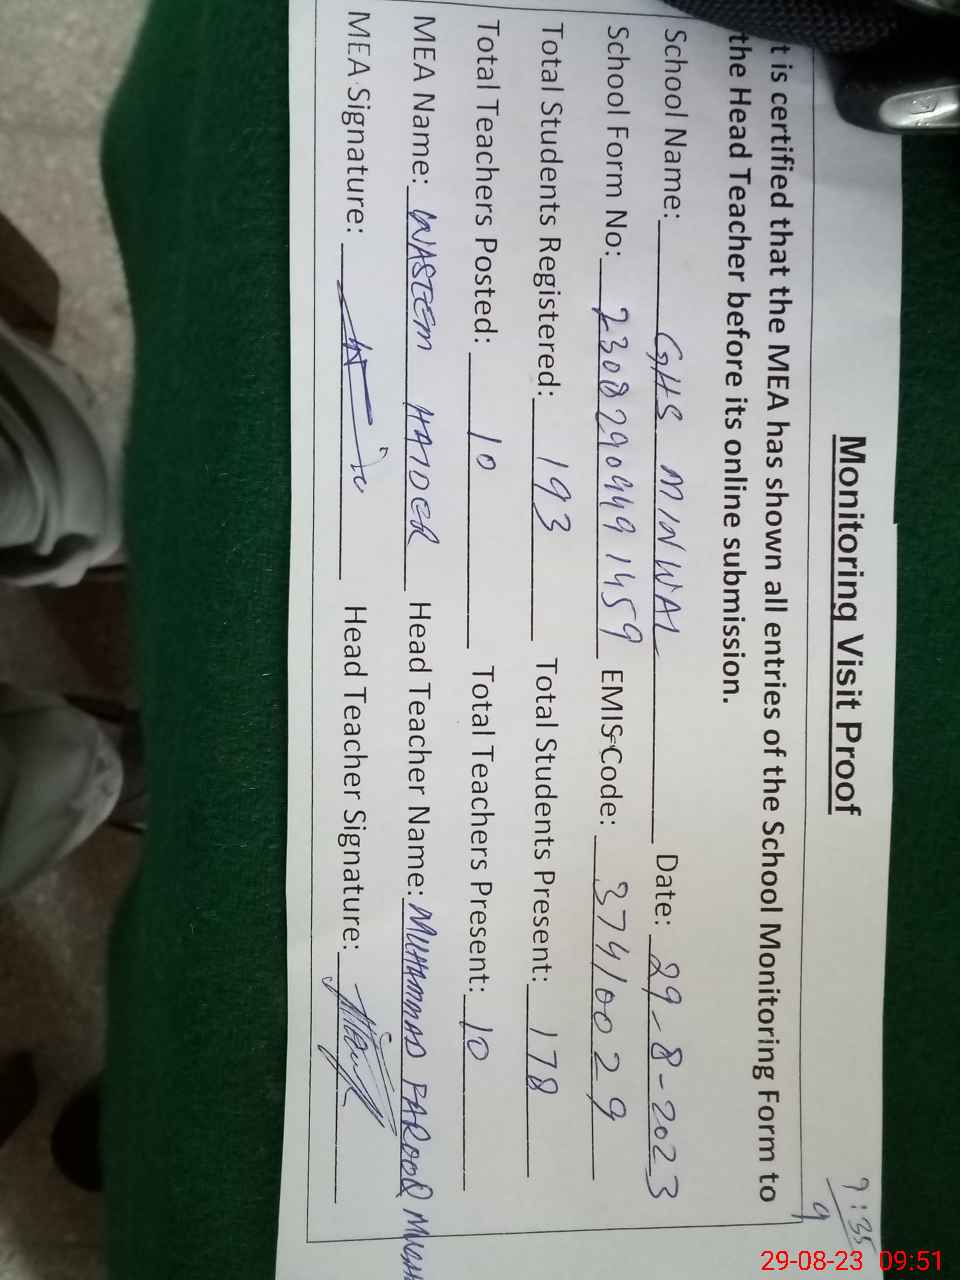 Monitoring Visit Proof
9:35
9
t is certified that the MEA has shown all entries of the School Monitoring Form to
the Head Teacher before its online submission.
School Name: GHS MINWAL Date: 29-8-2023
School Form No: 23082909491459 EMIS Code: 37410029
Total Students Registered: 193 Total Students Present: 178
Total Teachers Posted: 10 Total Teachers Present: 10
MEA Name: WASEEM HAIDER Head Teacher Name: MUHAMMAD FAROOQ
MEA Signature: Head Teacher Signature:
29-08-23 09:51